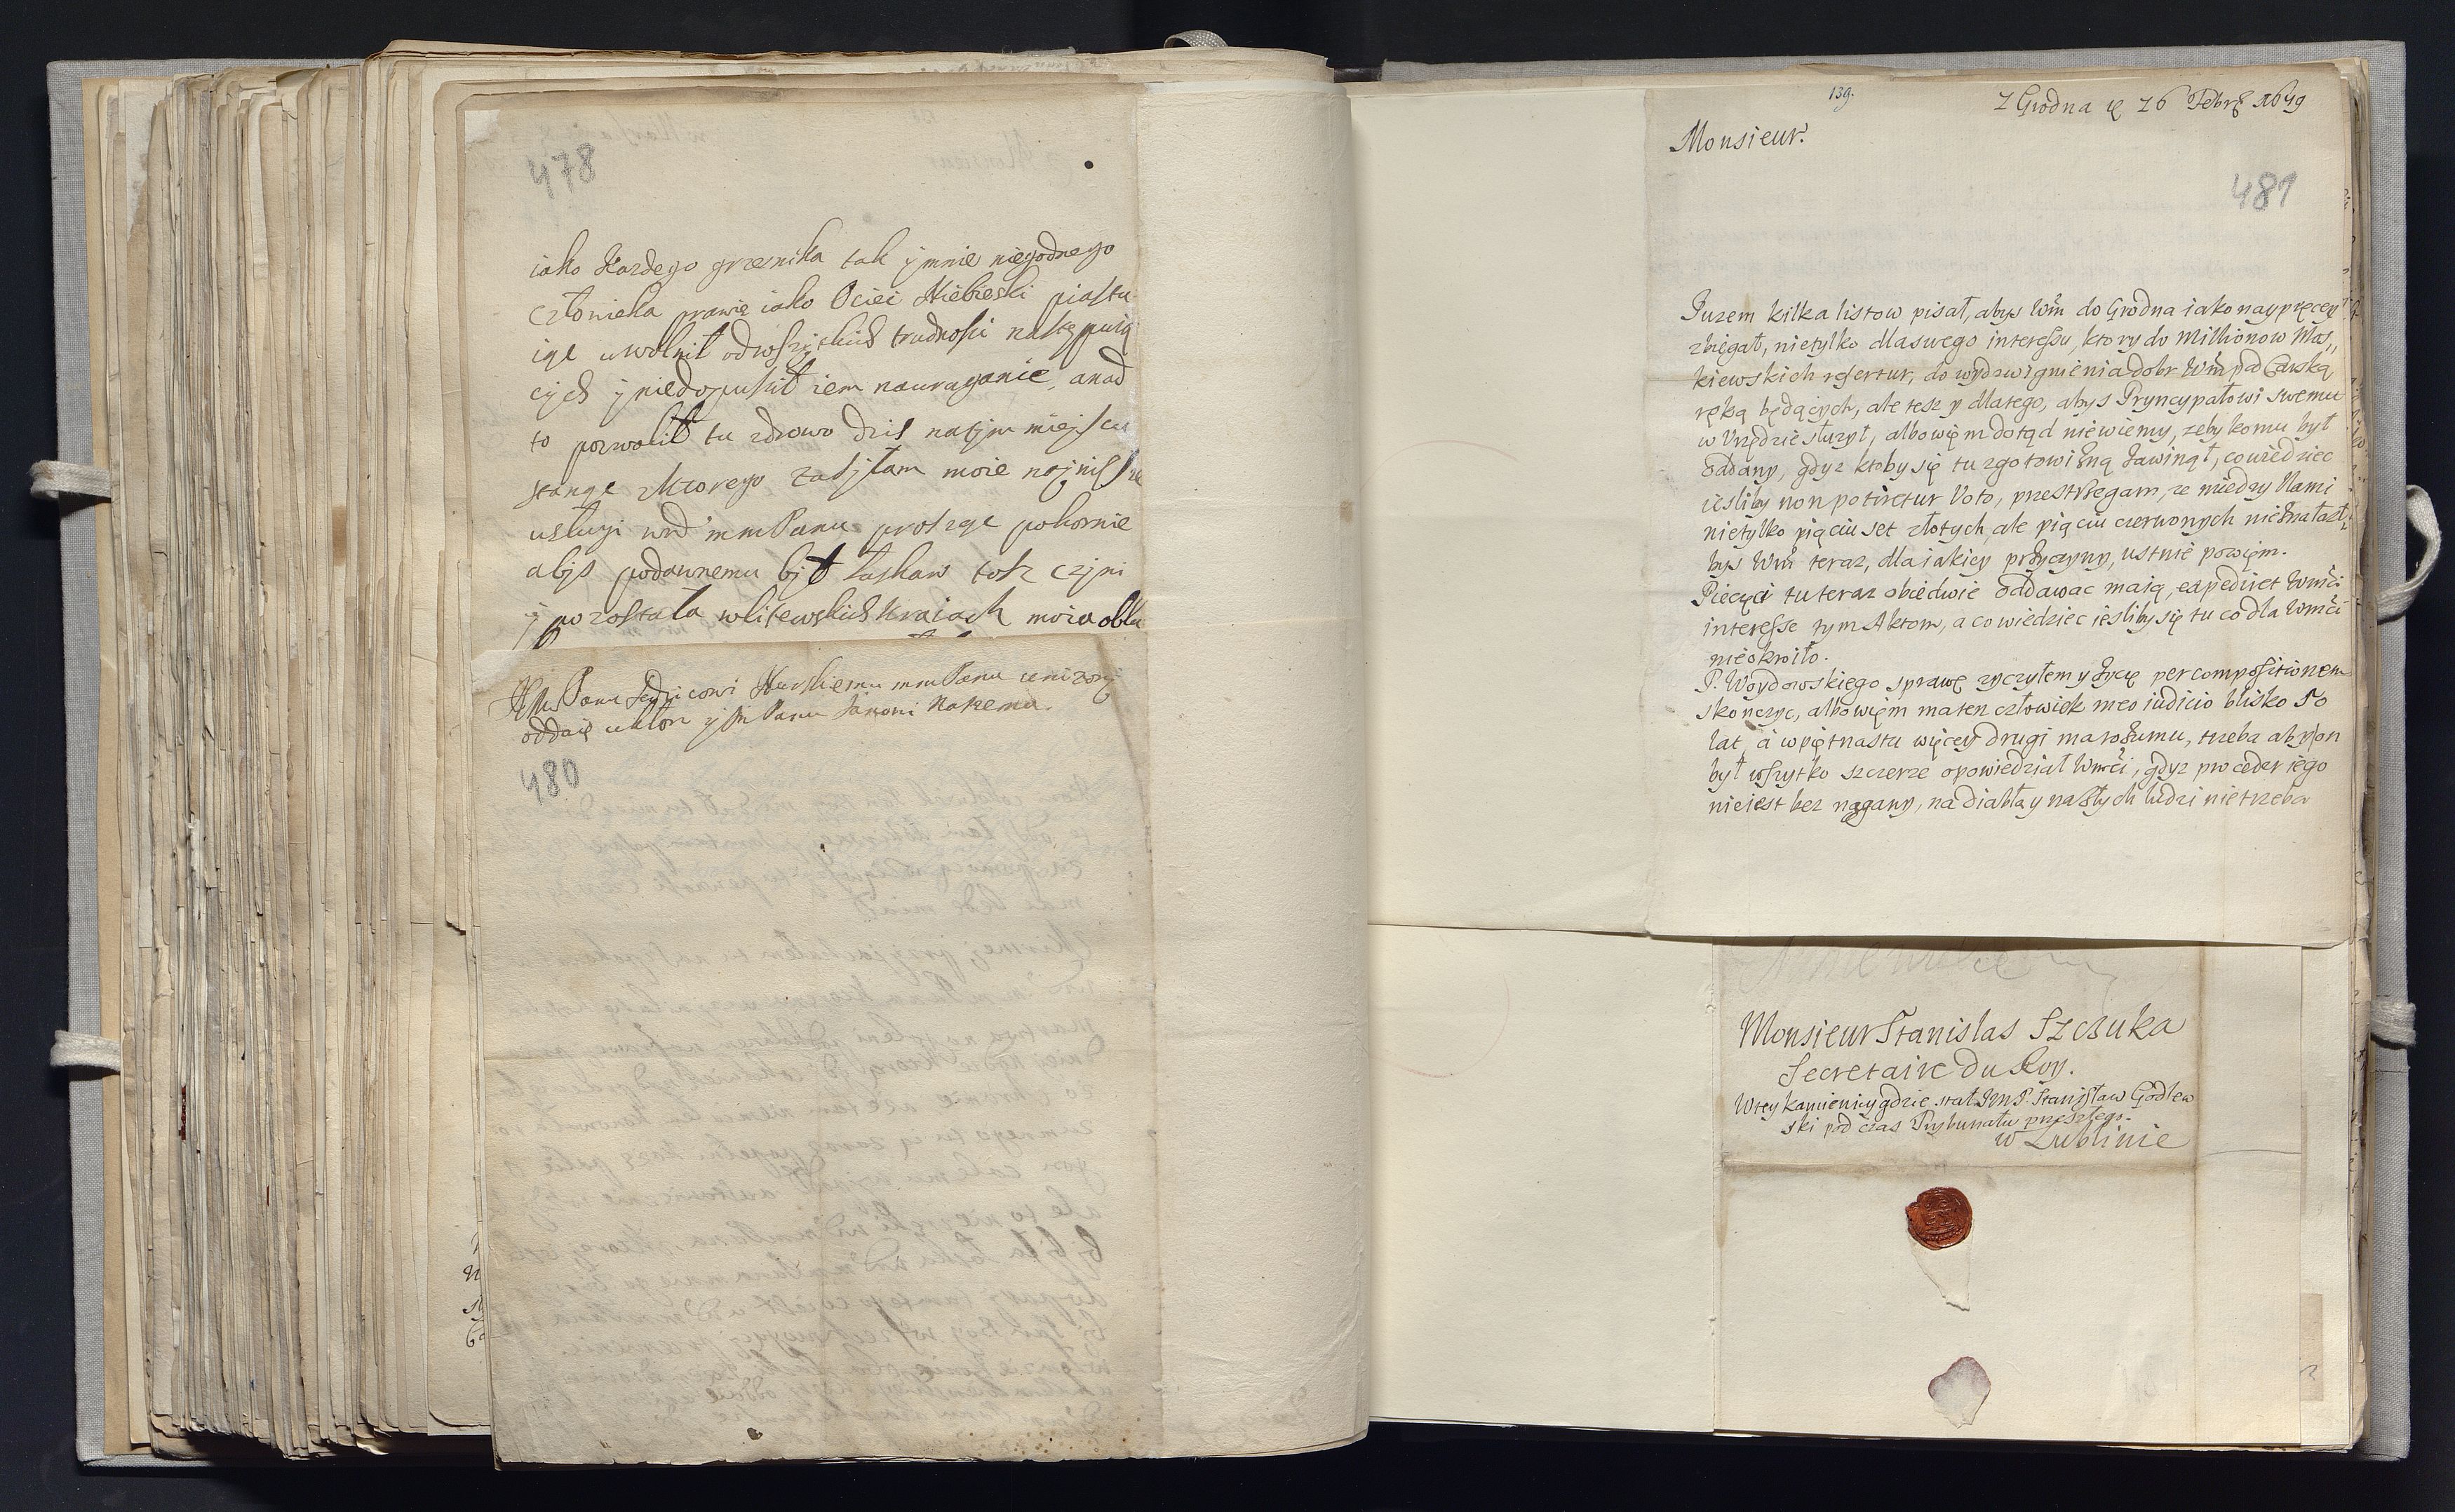 478
iako Kazdego grzesnika tak y mnie niegodnego
człowieka prawie iako Ociec Niebieski piastu
iąc uwolnił od wszyskich trudnosci następuią
cych y niedopuscił iem na uraganie, a nad
to pozwolił tu zdrowo dzis na tym miejscu
stanąc z Ktorego zasyłam moie najnisze
usługi wd mm Panu proszęc pokornie
abys podawnemu był łaskaw tosz czyni
y pozostała w litewskich Kraiach moia obli
JM Panu Sędzicowi Hurskiemu mm Panu unizony
oddaię ukłon y Jm Panu Janowi Naszemu.
480
139.
Z Grodna ię 26 Febrę 1679
Monsieur.
481
Juzem kilka listow pisał, abys Wm do Grodna iako naypręcey
zbiegał, nietylko dla swego interessu, ktory do Millionow Mos,,
kiewskich refertur, do wydzwignienia dobr Wm pod Carską
ręką będących, ale tesz y dlatego, abys Pryncypałowi swemu
w Urzędzie słuzył, albowięm dotąd niewiemy, zeby komu był
oddany, gdyz ktoby się tu zgotowizną zawinął, co wiedziec
iesliby non potiretur Voto, przestrzegam, ze miedzy Nami
nietylko pięciu set złotych, ale pięciu czerwonych nieznalazł
bys Wm teraz, dla iakiey przyczyny, ustnie powięm.
Pieczęci tu teraz obiedwie oddawac maią, expediet Wmci
interesse tym Aktom, a co wiedziec iesliby się tu co dla Wmci
nieokroiło.
P. Woydowskiego sprawę zyczyłem y zyczę per compositionem
skonczyc, albowięm ma ten człowiek meo iudicio blisko 50
lat, a w piętnastu więcey drugi ma rozumu, trzeba aby on
był wszytko szczerze opowiedział Wmci, gdyz proceder iego
nieiest bez nagany, na diabła y na złych ludzi nietrzeba
Monsieur Stanislas Szczuka
Secretaire Du Roy.
W tey kamienicy gdzie stał JM P. Stanisław Godlew
ski pod czas Trybunału przeszłego.
w Lublinie